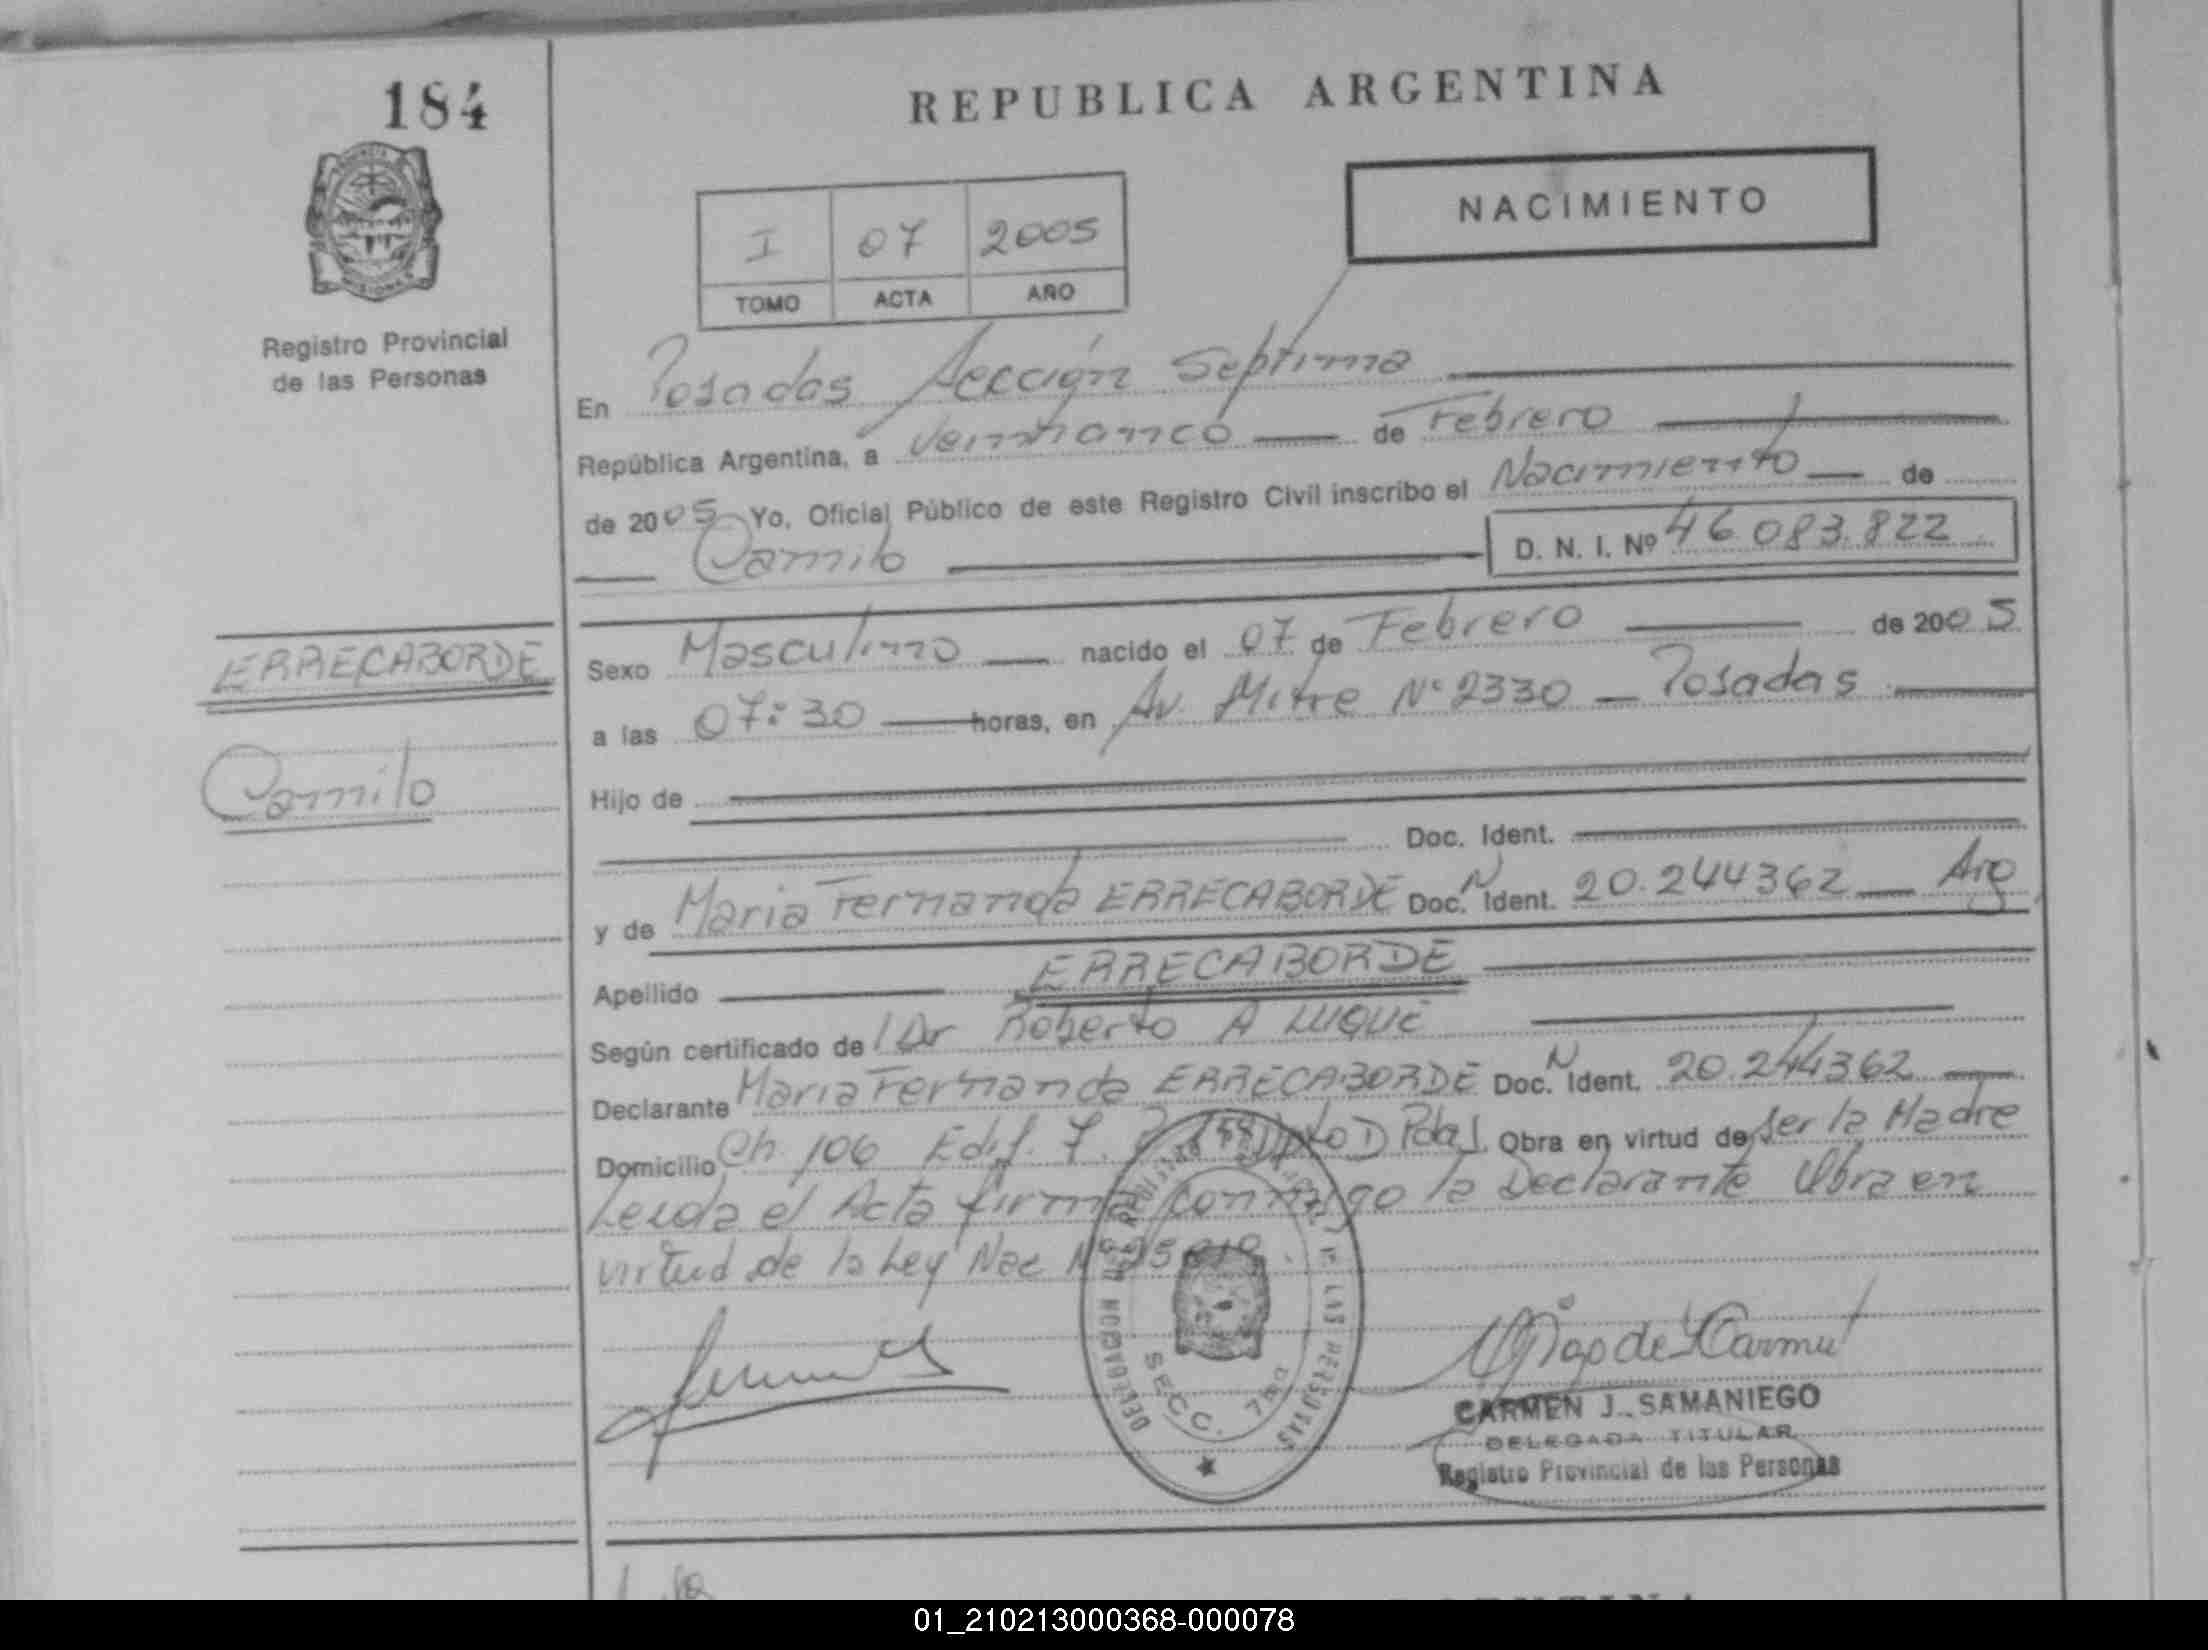 184
REPUBLICA ARGENTINA
NACIMIENTO
I 07 2005
TOMO ACTA AÑO
Registro Provincial
de las Personas
En Posadas Sección Septima
República Argentina, a Veinticinco de Febrero
de 2005 Yo, Oficial Público de este Registro Civil inscribo el Nacimiento de
Camilo D. N. I. Nº 46.083.822
ERRECABORDE
Camilo
Sexo Masculino nacido el 07 de Febrero de 2005
a las 07:30 horas, en Av. Mitre Nº 2330 - Posadas
Hijo de
Doc. Ident.
y de Maria Fernanda ERRECABORDE Doc. N Ident. 20.244362 Arg
Apellido ERRECABORDE
Según certificado de Dr Roberto A LUQUE
Declarante Maria Fernanda ERRECABORDE Doc. N Ident. 20.244362
Domicilio Ch. 106 Edif. 7 Dpto D Pdas. Obra en virtud de Ser la Madre
Leida el Acta firma conmigo la Declarante Obra en
virtud de la Ley Nac N
DELEGACION REGISTRO LAS PERSONAS
SECC. 7ma
CARMEN J. SAMANIEGO
DELEGADA TITULAR
Registro Provincial de las Personas
01_210213000368-000078